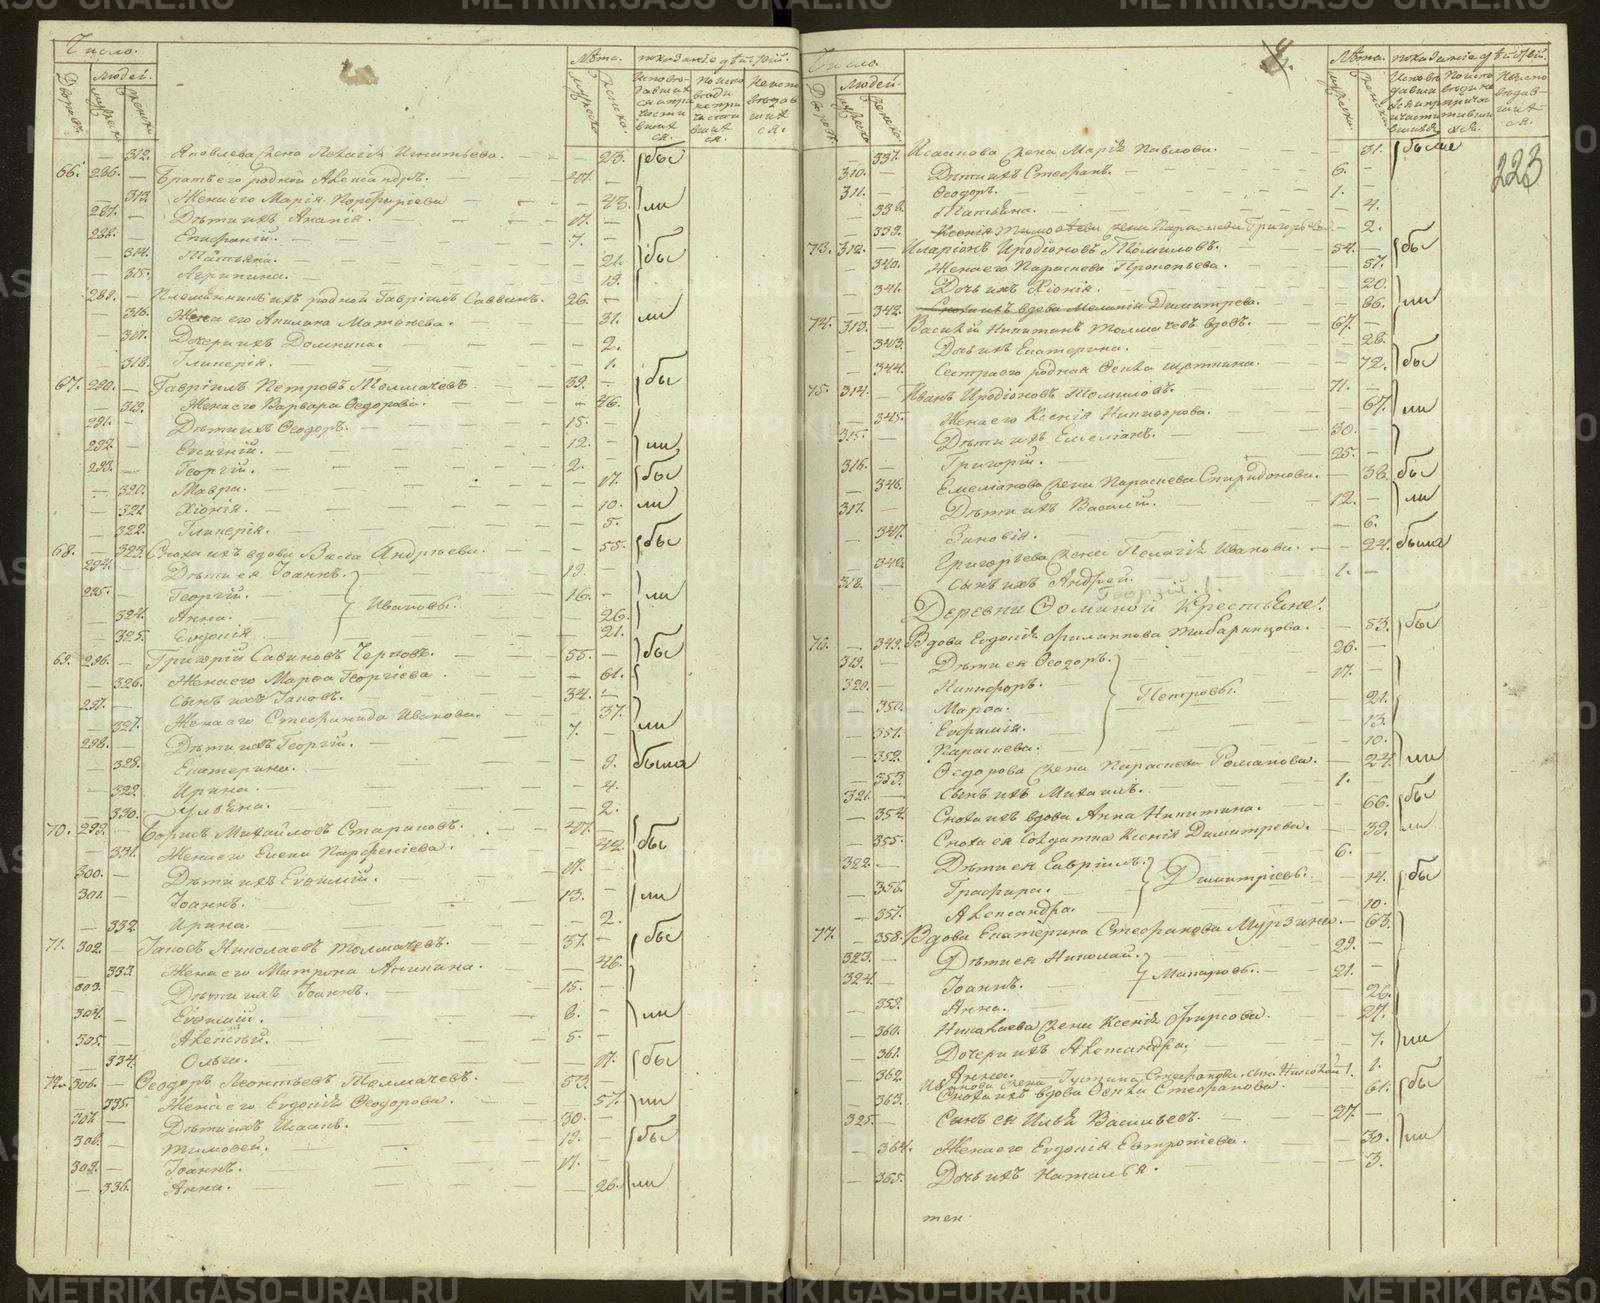 Число.
Людей.
Лѣта.
Дворовъ.
мужеска.
женска.
312. Яковлева жена Пелагія Игнатьева. 23. бы
66. 286. Братъ его родной Александръ. 47.
313. Жена его Марія Порфирьева 43. ли
287. Дѣти ихъ Ананія. 17.
288. Епифаній. 7.
314. Татьяна. 21. бы
315. Агрипина. 19.
289. Племянникъ ихъ родной Гавріилъ Саввинъ. 26.
316. Жена его Акилина Матвѣева. 31. ли
317. Дочери ихъ Домнина. 2.
318. Гликерія. 1.
67. 290. Гавріилъ Петровъ Толмачевъ 39. бы
319. Жена его Варвара Ѳедорова. 46.
291. Дѣти ихъ Ѳеодоръ. 15.
292. Евгеній. 12. ли
293. Георгій. 2.
320. Мавра. 17. бы
321. Хіонія. 10. ли
322. Гликерія. 5.
68. 323. Сноха ихъ вдова Васса Андреева. 55. бы
294. Дѣти ея Іоаннъ. 19.
295. Георгій. 16. ли
Ивановы.
324. Анна. 26.
325. Евдокія 21.
69. 296. Григорій Савиновъ Черновъ. 55. бы
326. Жена его Марѳа Георгіева 61.
297. Сынъ ихъ Іаковъ. 34.
327. Жена его Стефанида Иванова. 37. ли
298. Дѣти ихъ Георгій. 7.
328. Екатерина. 9. были
329. Ирина. 4.
330. Ульяна. 2.
70. 299. Борисъ Михайловъ Стариковъ. 47.
331. Жена его Елена Парфеніева. 42. бы
300. Дѣти ихъ Евѳимій. 17.
301. Іоаннъ. 13. ли
332. Ирина. 2.
71. 302. Іаковъ Николаевъ Толмачевъ. 37. бы
333. Жена его Матрона Аникина. 46.
303. Дѣти ихъ Іоаннъ. 15.
304. Евѳимій. 8. ли
305. Алексѣй. 5.
334. Ольга. 17. бы
72. 306. Ѳеодоръ Леонтьевъ Толмачевъ. 53.
335. Жена его Евдокія Ѳеодорова. 57. ли
307. Дѣти ихъ Исаакъ. 30.
308. Тимоѳей. 19. бы
309. Іоаннъ. 17.
336. Анна. 26. ли
Число.
Людей.
Лѣта.
Дворовъ.
мужеска.
женска.
223
337. Исаакова жена Марія Павлова. 31. были
310. Дѣти ихъ Стефанъ. 6.
311. Ѳеодоръ. 1.
338. Татьяна. 4.
339. Ксенія Тимоѳеева жена Параскева Григорьева 2.
73. 312. Иларіонъ Иродіоновъ Томиловъ. 54. бы
340. Жена его Параскева Прокопьева. 57.
341. Дочь ихъ Хіонія. 20.
342. Сноха ихъ вдова Меланія Димитрева. 86. ли
74. 313. Василій Никитинъ Толмачевъ вдовъ. 67.
343. Дочь ихъ Екатерина. 28.
344. Сестра его родная Ѳекла Щеткина. 72. бы
75. 314. Иванъ Иродіоновъ Томиловъ. 71.
345. Жена его Ксенія Никифорова. 67. ли
315. Дѣти ихъ Емеліанъ. 30.
316. Григорій. 25.
346. Емеліанова жена Параскева Спиридонова. 38. бы
317. Дѣти ихъ Василій. 12. ли
347. Зиновія. 6.
348. Григорьева жена Пелагія Иванова. 24. были
318. Сынъ ихъ Андрей. 1.
Георгій.1.
Деревни Ѳоминой Крестьяне.
76. 349. Вдова Евдокія Филиппова Табаринцова. 53. бы
319. Дѣти ея Ѳеодоръ. 26.
320. Никифоръ. 17.
Петровы.
350. Марѳа. 21.
351. Евфимія. 13.
352. Параскева. 10.
353. Ѳедорова жена Параскева Романова. 24. ли
321. Сынъ ихъ Михаилъ. 1.
354. Сноха ихъ вдова Анна Никитина. 66. бы
355. Сноха ея солдатка Ксенія Димитрева. 39. ли
322. Дѣти ея Гавріилъ. 6.
356. Глафира. Димитріевы. 14. бы
357. Александра. 10.
77. 358. Вдова Екатерина Стефанова Мурзина. 63.
323. Дѣти ея Николай. 29.
324. Іоаннъ. Макаровы. 21.
359. Анна. 26.
360. Николаева жена Ксенія Фирсова. 27.
361. Дочери ихъ Александра. 7. ли
362. Анна. 1.
Иванова жена Густина Стефанова, сынъ Николай 1.
363. Сноха ихъ вдова Ѳекла Стефанова. 61. бы
325. Сынъ ея Илья Васильевъ. 27.
364. Жена его Евдокія Евтропіева. 30. ли
365. Дочь ихъ Наталья. 3.
тек